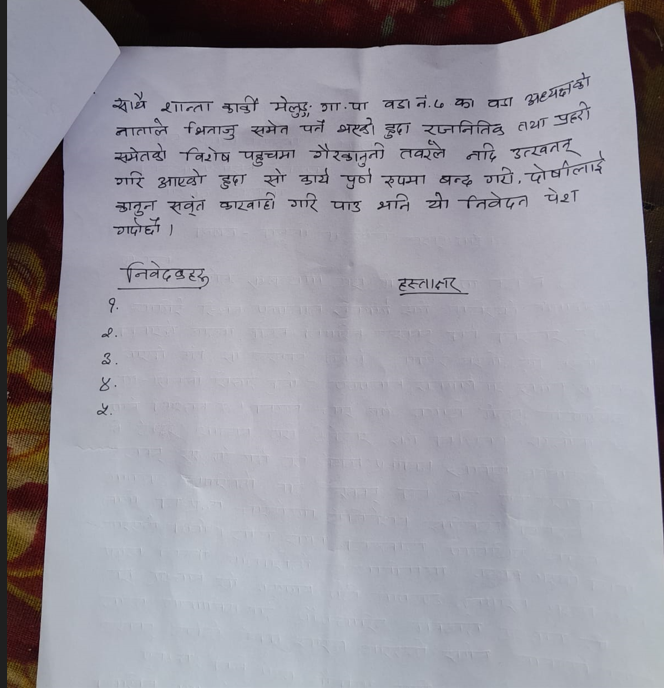 साथै शान्ता कार्की मेलुङ्ग गा.पा वडा नं.७ का वडा अध्यक्षको
नाताले भिनाजु समेत पर्ने भएको हुदा राजनितिक तथा प्रहरी
समेतको विशेष पहुचमा गैरकानुनी तवरले नदि उत्खनन्
गरि आएको हुदा सो कार्य पुर्ण रुपमा बन्द गरी, दोषीलाई
कानुन सवंत कारवाही गरि पाउ भनि यो निवेदन पेश
गर्दछौं ।
निवेदकहरु हस्ताक्षर
१.
२.
३.
४.
५.